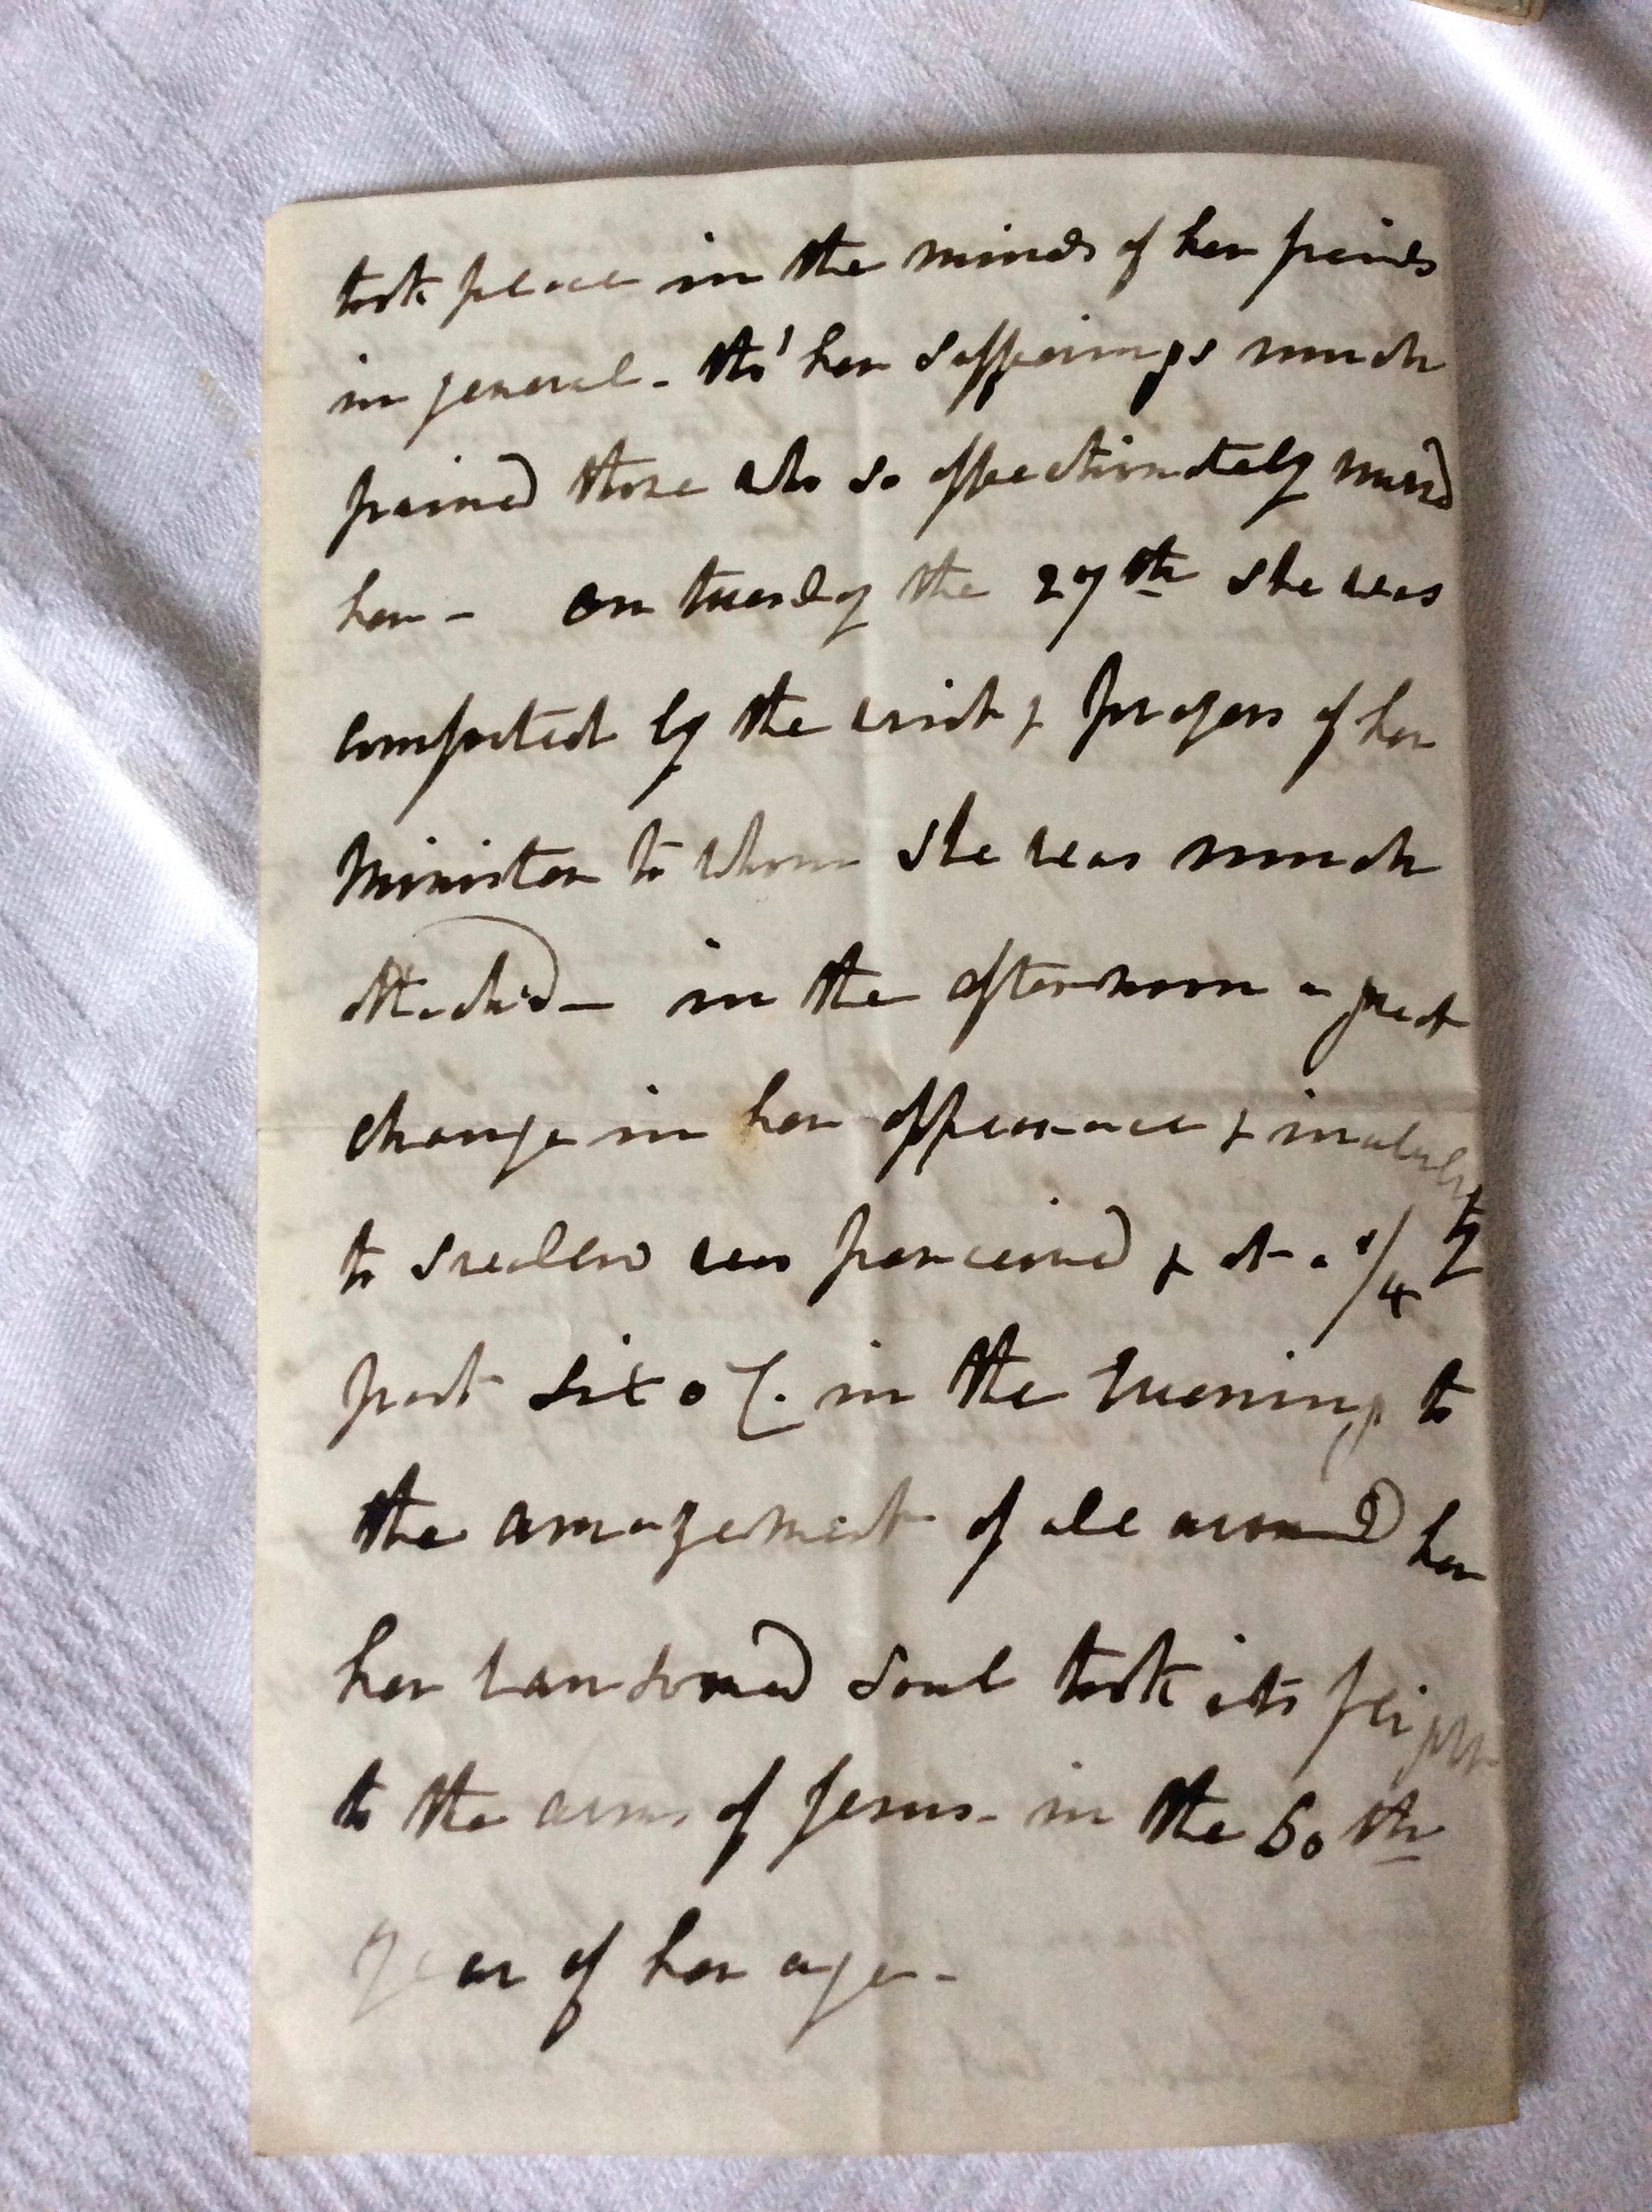 took place in the minds of her friends
in general - tho' her sufferings much
pained those who so affectionately nursd
her - on tuesday the 27th she was
comforted by the visit & prayers of her
Minister to whom she was much
attached - in the afternoon a great
change in her appearance & inability
to swallow was perceived & at a 1/4
past six o C. in the Evening to
the amazement of all around her
her ransomed soul took its flight
to the arms of Jesus - in the 60th
year of her age -